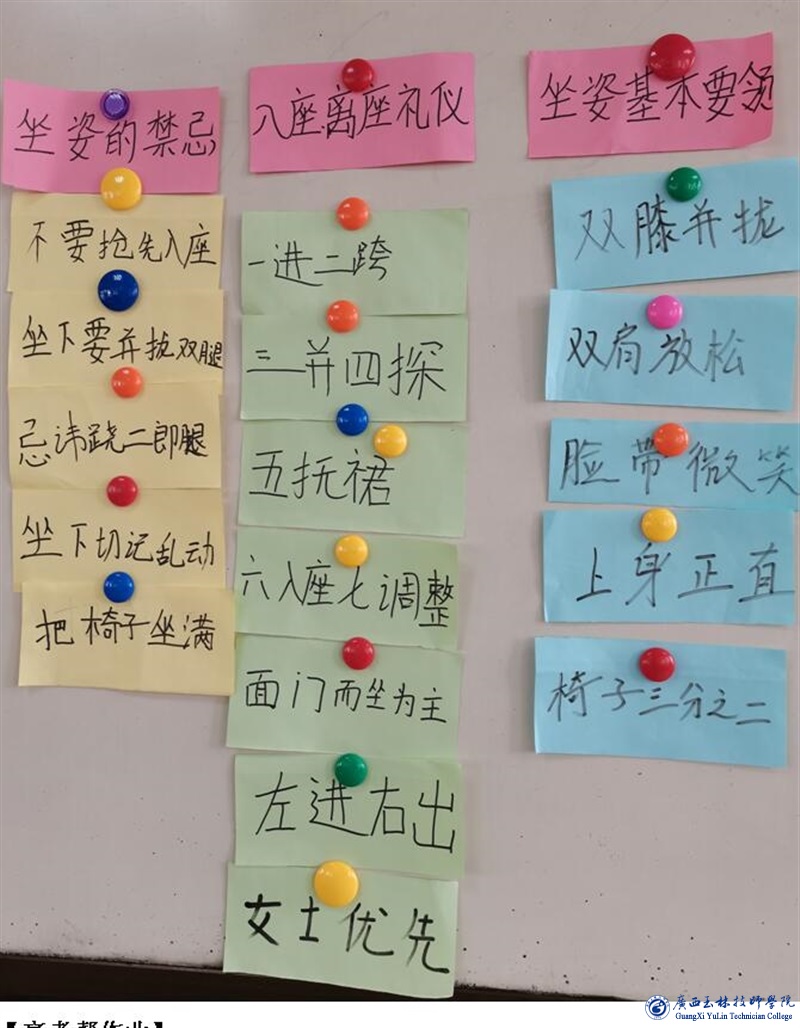 坐姿的禁忌
不要抢先入座
坐下要并拢双腿
忌讳跷二郎腿
坐下切记乱动
把椅子坐满
入座离座礼仪
一进二跨
三并四探
五抚裙
六入座七调整
面门而坐为主
左进右出
女士优先
坐姿基本要领
双膝并拢
双肩放松
脸带微笑
上身正直
椅子三分之二
廣西玉林技師學院
GuangXi YuLin Technician College